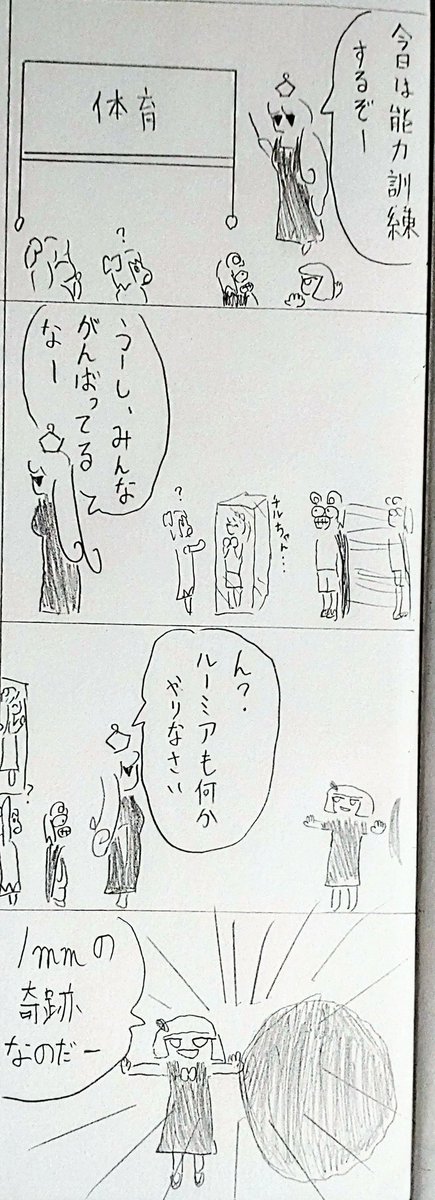 今日は能力訓練
するぞー
体育
?
うーし、みんな
がんばってる
なー
チルちゃん…
?
ん?
ルーミアも何か
やりなさい
?
1mmの
奇跡
なのだー